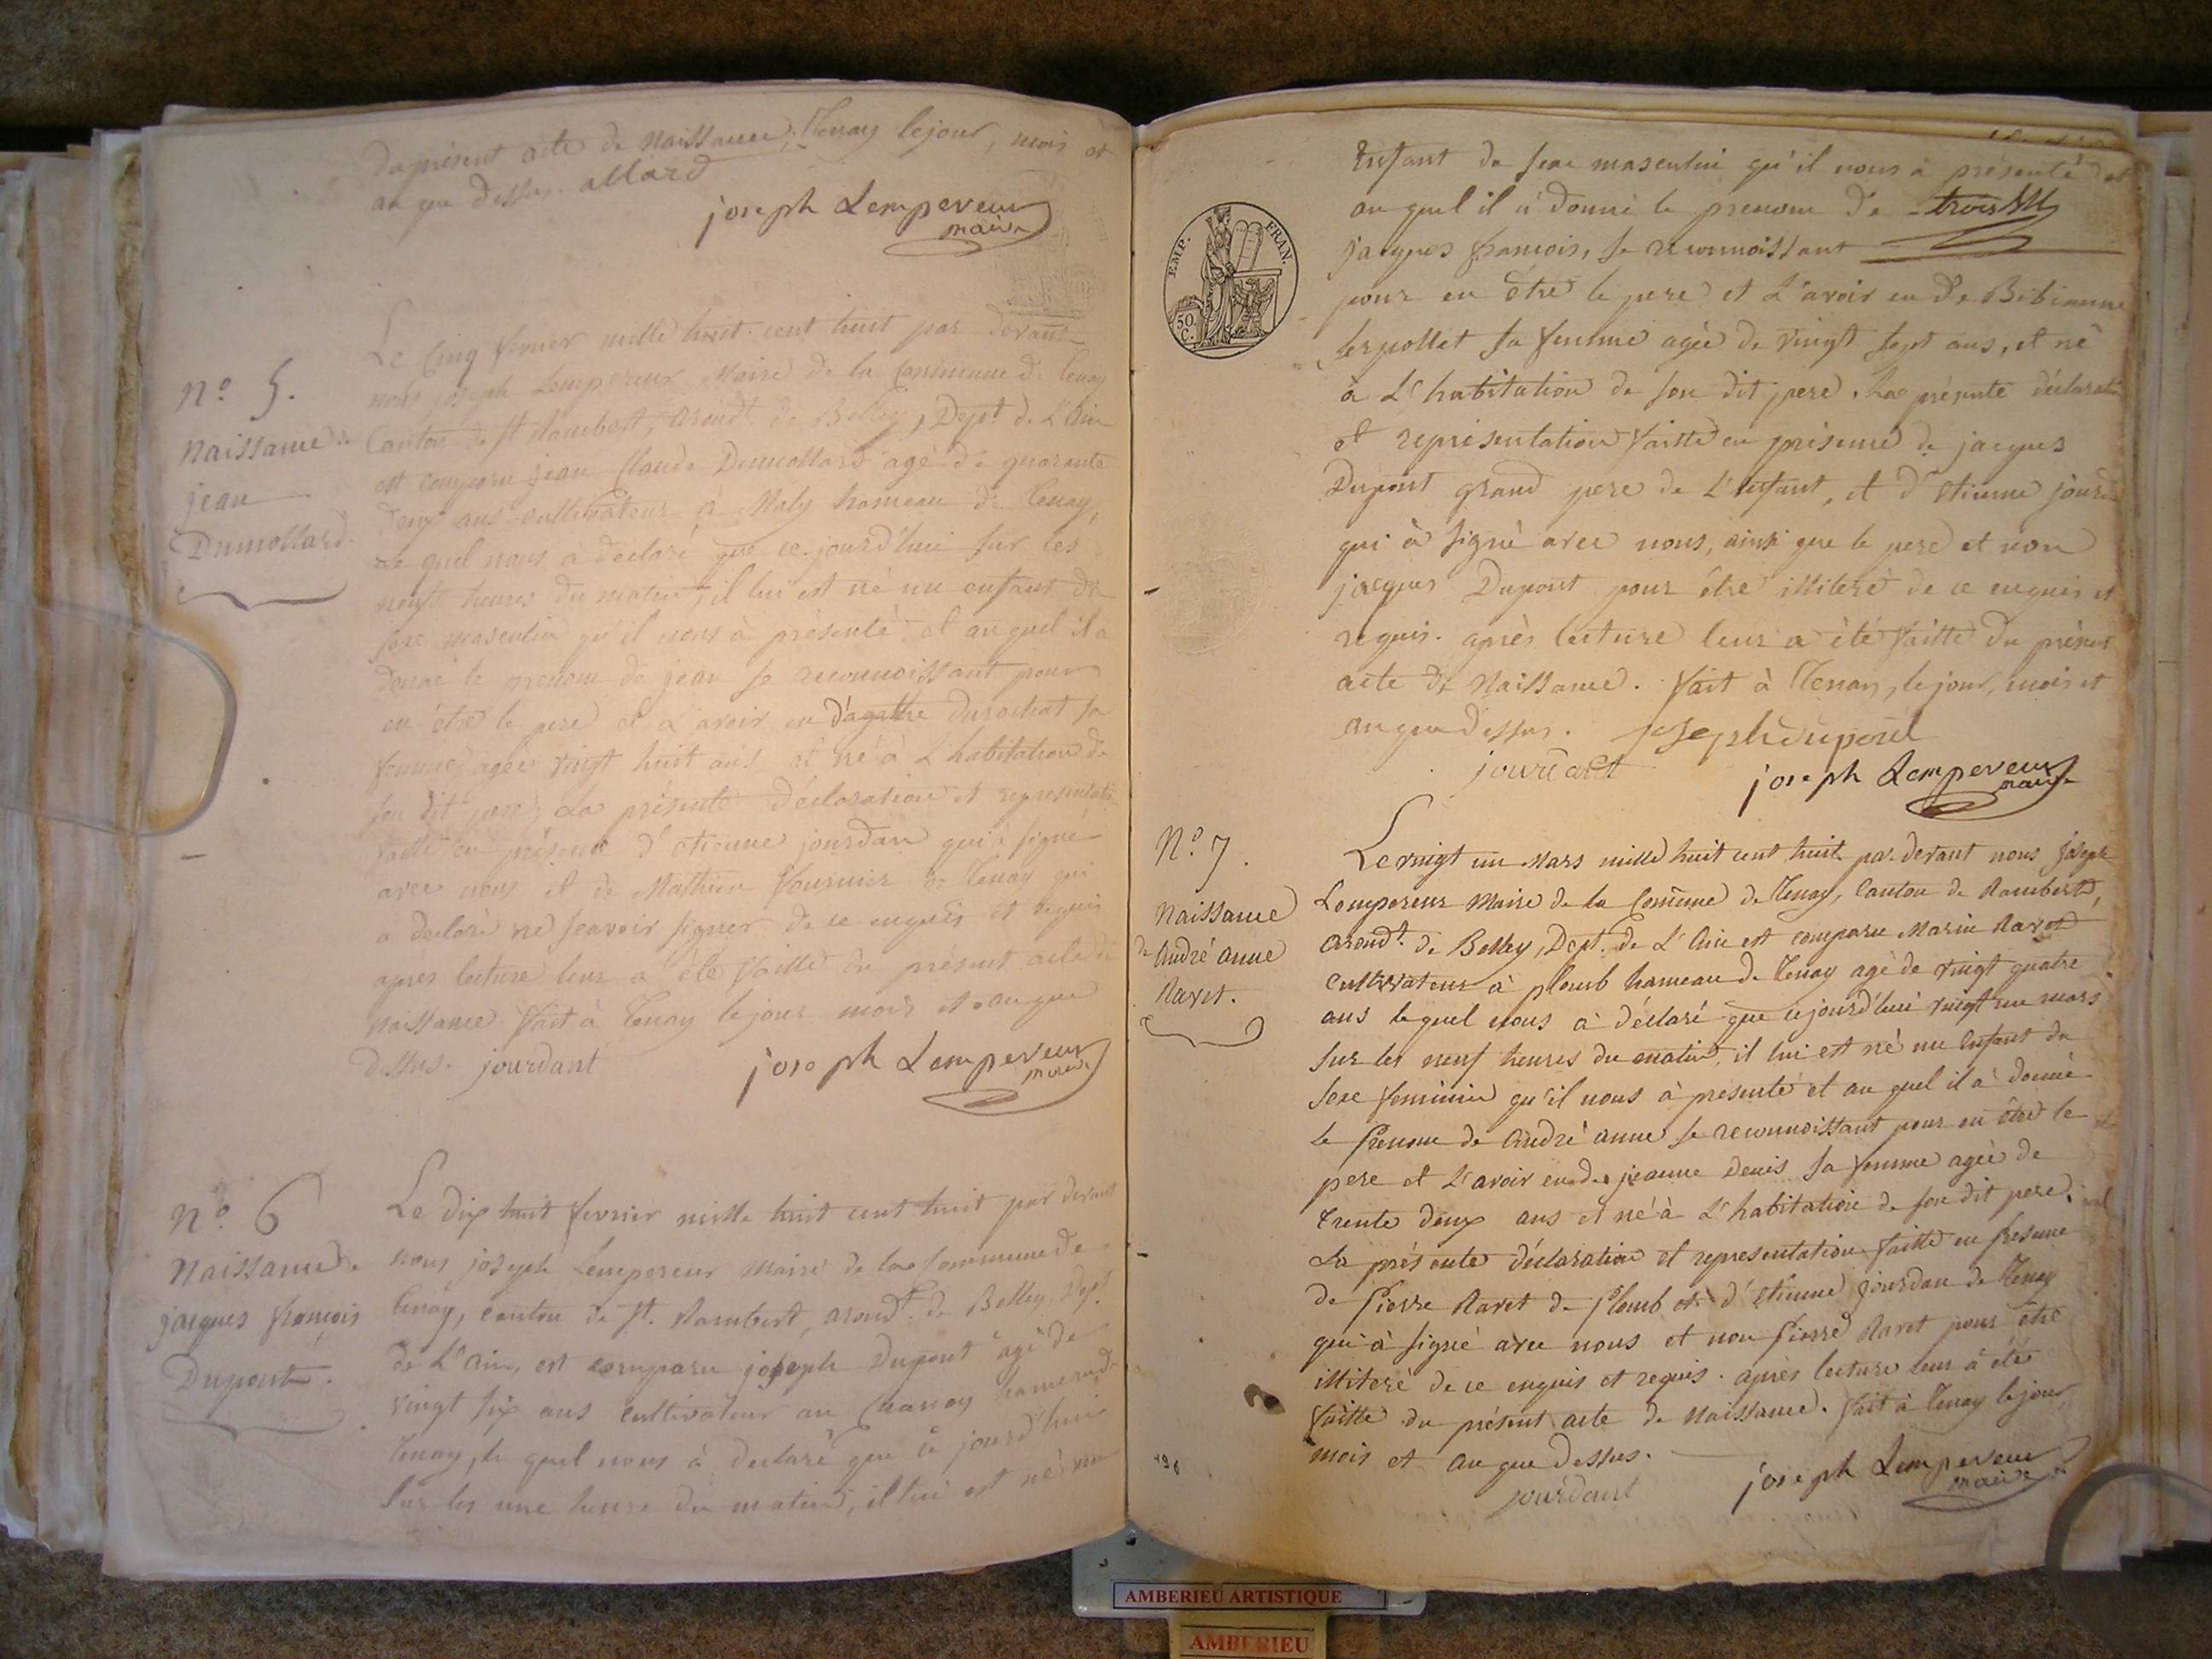 Du présent acte de Naissance, Tenay le jour, mois et
an que dessus. allard
joseph Lempereur
maire
N.o 5.
Naissance de
jean
Dumollard.
Le Cinq fevrier mille huit cent huit par devant
nous joseph Lempereur Maire de la Commune de Tenay
Canton de St Rambert, arond.t de Belley, Dep.t de L'Ain
est comparu jean Claude Dumollard agé de quarante
deux ans cultivateur à Maly hameau de Tenay,
le quel nous a declaré que ce jourd'hui sur les
neuf heures du matin, il lui est né un enfant du
sexe masculin qu'il nous à présenté et au quel il a
donné le prenom de jean se reconnoissant pour
en être le pere et L'avoir eu d'agathe Durochat sa
femme agée vingt huit ans et né à L'habitation de
son dit pere, La présente déclaration et representation
faitte en présence d'etienne jourdan qui à signé
avec nous et de Mathieu fournier de Tenay qui
a declaré ne scavoir signer de ce enquis et requis
apres lecture leur a été faitte du présent acte de
Naissance. fait à Tenay le jour mois et an que
dessus. jourdant
joseph Lempereur
maire
N.o 6
Naissance
jacques francois
Dupont.
Le dix huit fevrier mille huit cent huit par devant
nous joseph Lempereur Maire de la Commune de
Tenay, canton de St. Rambert, arond.t de Belley Dep.t
de L'Ain, est comparu joseph Dupont âgé de
vingt six ans cultivateur au Chanay hameau de
Tenay, le quel nous à declaré que ce jourd'hui
Sur les une heure du matin, il lui est né un
EMP. FRAN.
50.
C.
Enfant du sexe masculin qu'il nous à présenté et
au quel il a donné le prenom de
jacques francois, se reconnoissant
pour en être le pere et L'avoir eu de Bibianne
sa femme agée de vingt sept ans, et né
à L'habitation de son dit pere. La présente déclaration
et représentation faitte en présence de jacques
Dupont grand pere de L'enfant, et d'etienne jourdan
qui à signé avec nous, ainsi que le pere et non
jacques Dupont pour être illiteré de ce enquis et
requis. après lecture leur a été faitte du présent
acte de Naissance. fait à Tenay, le jour, mois et
an que dessus. joseph dupont
jourdant
joseph Lempereur
maire
N.o 7.
Naissance
de André anne
Ravet.
Le vingt un Mars mille huit cent huit par devant nous Joseph
Lempereur Maire de la Comune de Tenay, Canton de Rambert,
arond.t de Belley, Dept. de L'Ain est comparu Marin Ravet
Cultivateur à plomb hameau de Tenay agé de vingt quatre
ans lequel nous à déclaré que cejourd'hui vingt un mars
sur les neuf heures du matin, il lui est né un Enfant du
sexe feminin qu'il nous à presenté et au quel il à donné
le Prenom de André anne se reconnoissant pour en être le
pere et L'avoir eu de jeanne Denis sa femme agée de
trente deux ans et né à L'habitation de son dit pere.
La présente déclaration et representation faitte en presence
de Pierre Ravet de Plomb et d'étienne jourdan de Tenay
qui à signé avec nous et non Pierre Ravet pour être
illiteré de ce enquis et requis. après lecture leur à été
faitte du présent acte de Naissance. fait à Tenay le jour,
mois et an que dessus.
jourdant
joseph Lempereur
maire
AMBERIEU ARTISTIQUE
AMBERIEU